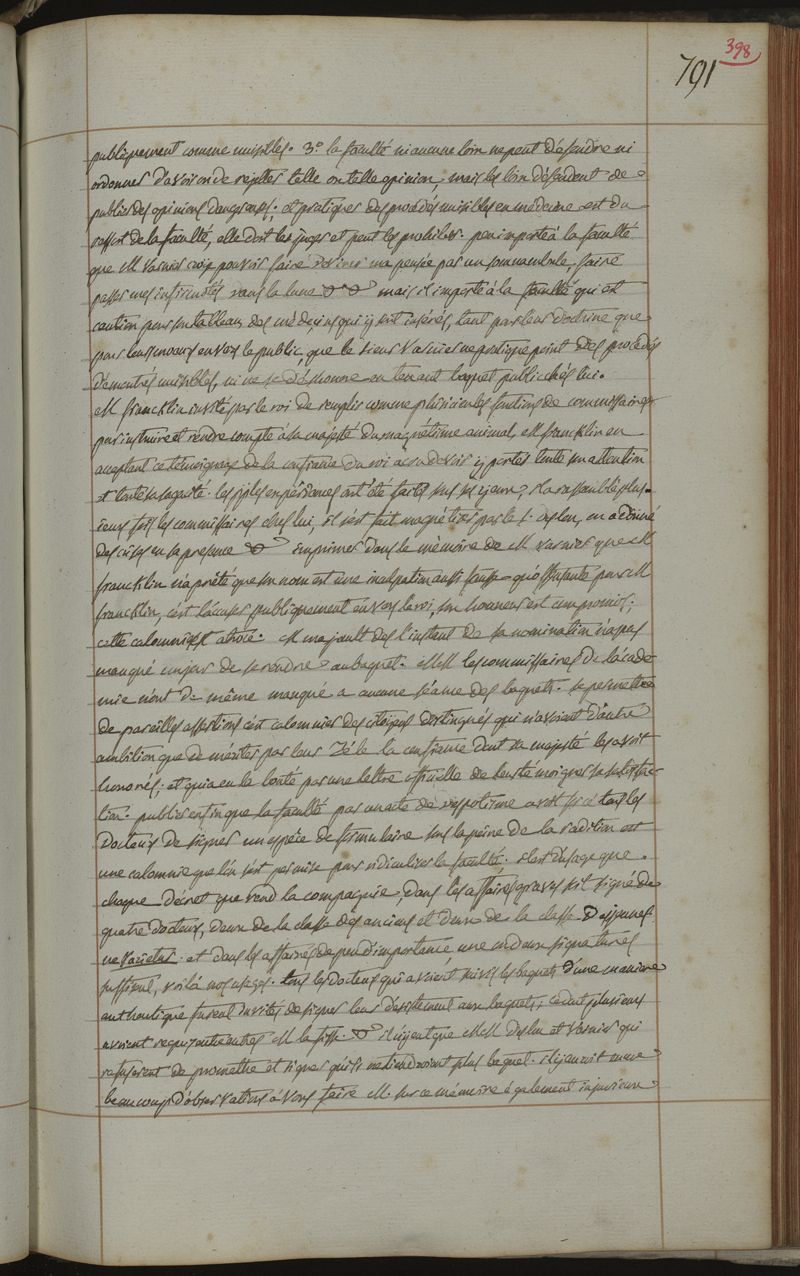 398
791
publiquement comme nuisibles. 3.° la faculté ni aucune loix ne peut défendre ni
ordonner d'avoir ou de rejetter telle ou telle opinion, mais les loix défendent de
publier des opinions dangereuses; et pratiquer des procédés nuisibles en médecine est du
ressort de la faculté, elle doit les juger et peut les prohiber. peu importe à la faculté
que M varnier croye pouvoir faire deviner ma pensée par un somnambule, faire
passer mes infirmités dans la lune &c &c mais il importe à la faculté qui est
caution par son tableau des médecins qui y sont insérés, tant par leur doctrine que
par leurs moeurs envers le public, que le sieur varnier ne pratique point des procédés
démontrés nuisibles, ni ne se déshonore en tenant baquet public chés lui.
M francklin invité par le roi de remplir comme phisicien les fonctions de commissaire
pour instruire et rendre compte à sa majesté du magnétisme animal, M francklin en
acceptant ce témoignage de la confiance du roi a cru devoir y porter toute son attention
et toute sa sagacité. les expériences ont été faites sous ses yeux, il a rassemblé plu-
sieurs fois les commissaires chés lui, il s'est fait magnétiser par le s. deslon, on a donné
des crises en sa presence &c imprimer dans le mémoire de M varnier que M
francklin n'a prêté que son nom est une inculpation aussi fausse qu'offensante pour M
francklin, c'est l'accuser publiquement envers le roi, son honneur est compromis;
cette calomnie est atroce. M majault dès l'instant de sa nomination n'a pas
manqué un jour de se rendre au baquet. MM les commissaires de l'acadé
mie n'ont de même manqué a aucune séance des baquets. se permettre
de pareilles assertions c'est calomnier des citoyens distingués qui n'avoient d'autre
ambition que de mériter par leur zéle la confiance dont sa majesté les avoit
honorés; et qui a eu la bonté par une lettre officielle de leur témoigner sa satisfac-
tion. publier enfin que la faculté par un acte de despotisme avoit forcé tous les
docteurs de signer une espèce de formulaire sous la peine de la radiation est
une calomnie que l'on s'est permise pour ridiculiser la faculté. il est d'usage que
chaque decret que rend la compagnie, dans les affaires graves soit signé de
quatre docteurs, deux de la classe des anciens et deux de la classe des jeunes
ne varietur. et dans les affaires de peu d'importance une ou deux signatures
suffisent, voilà nos usages. tous les docteurs qui avoient suivi les baquets d'une maniere
authentique furent invités de signer leur désistement aux baquets; plusieurs
avoient entre autres M la fisse &c il n'y eut que MM deslon et varnier qui
refuserent de promettre et signer qu'ils ne tiendroient plus baquet. il y auroit encore
beaucoup d'observations à vous faire M. sur ce mémoire également injurieux